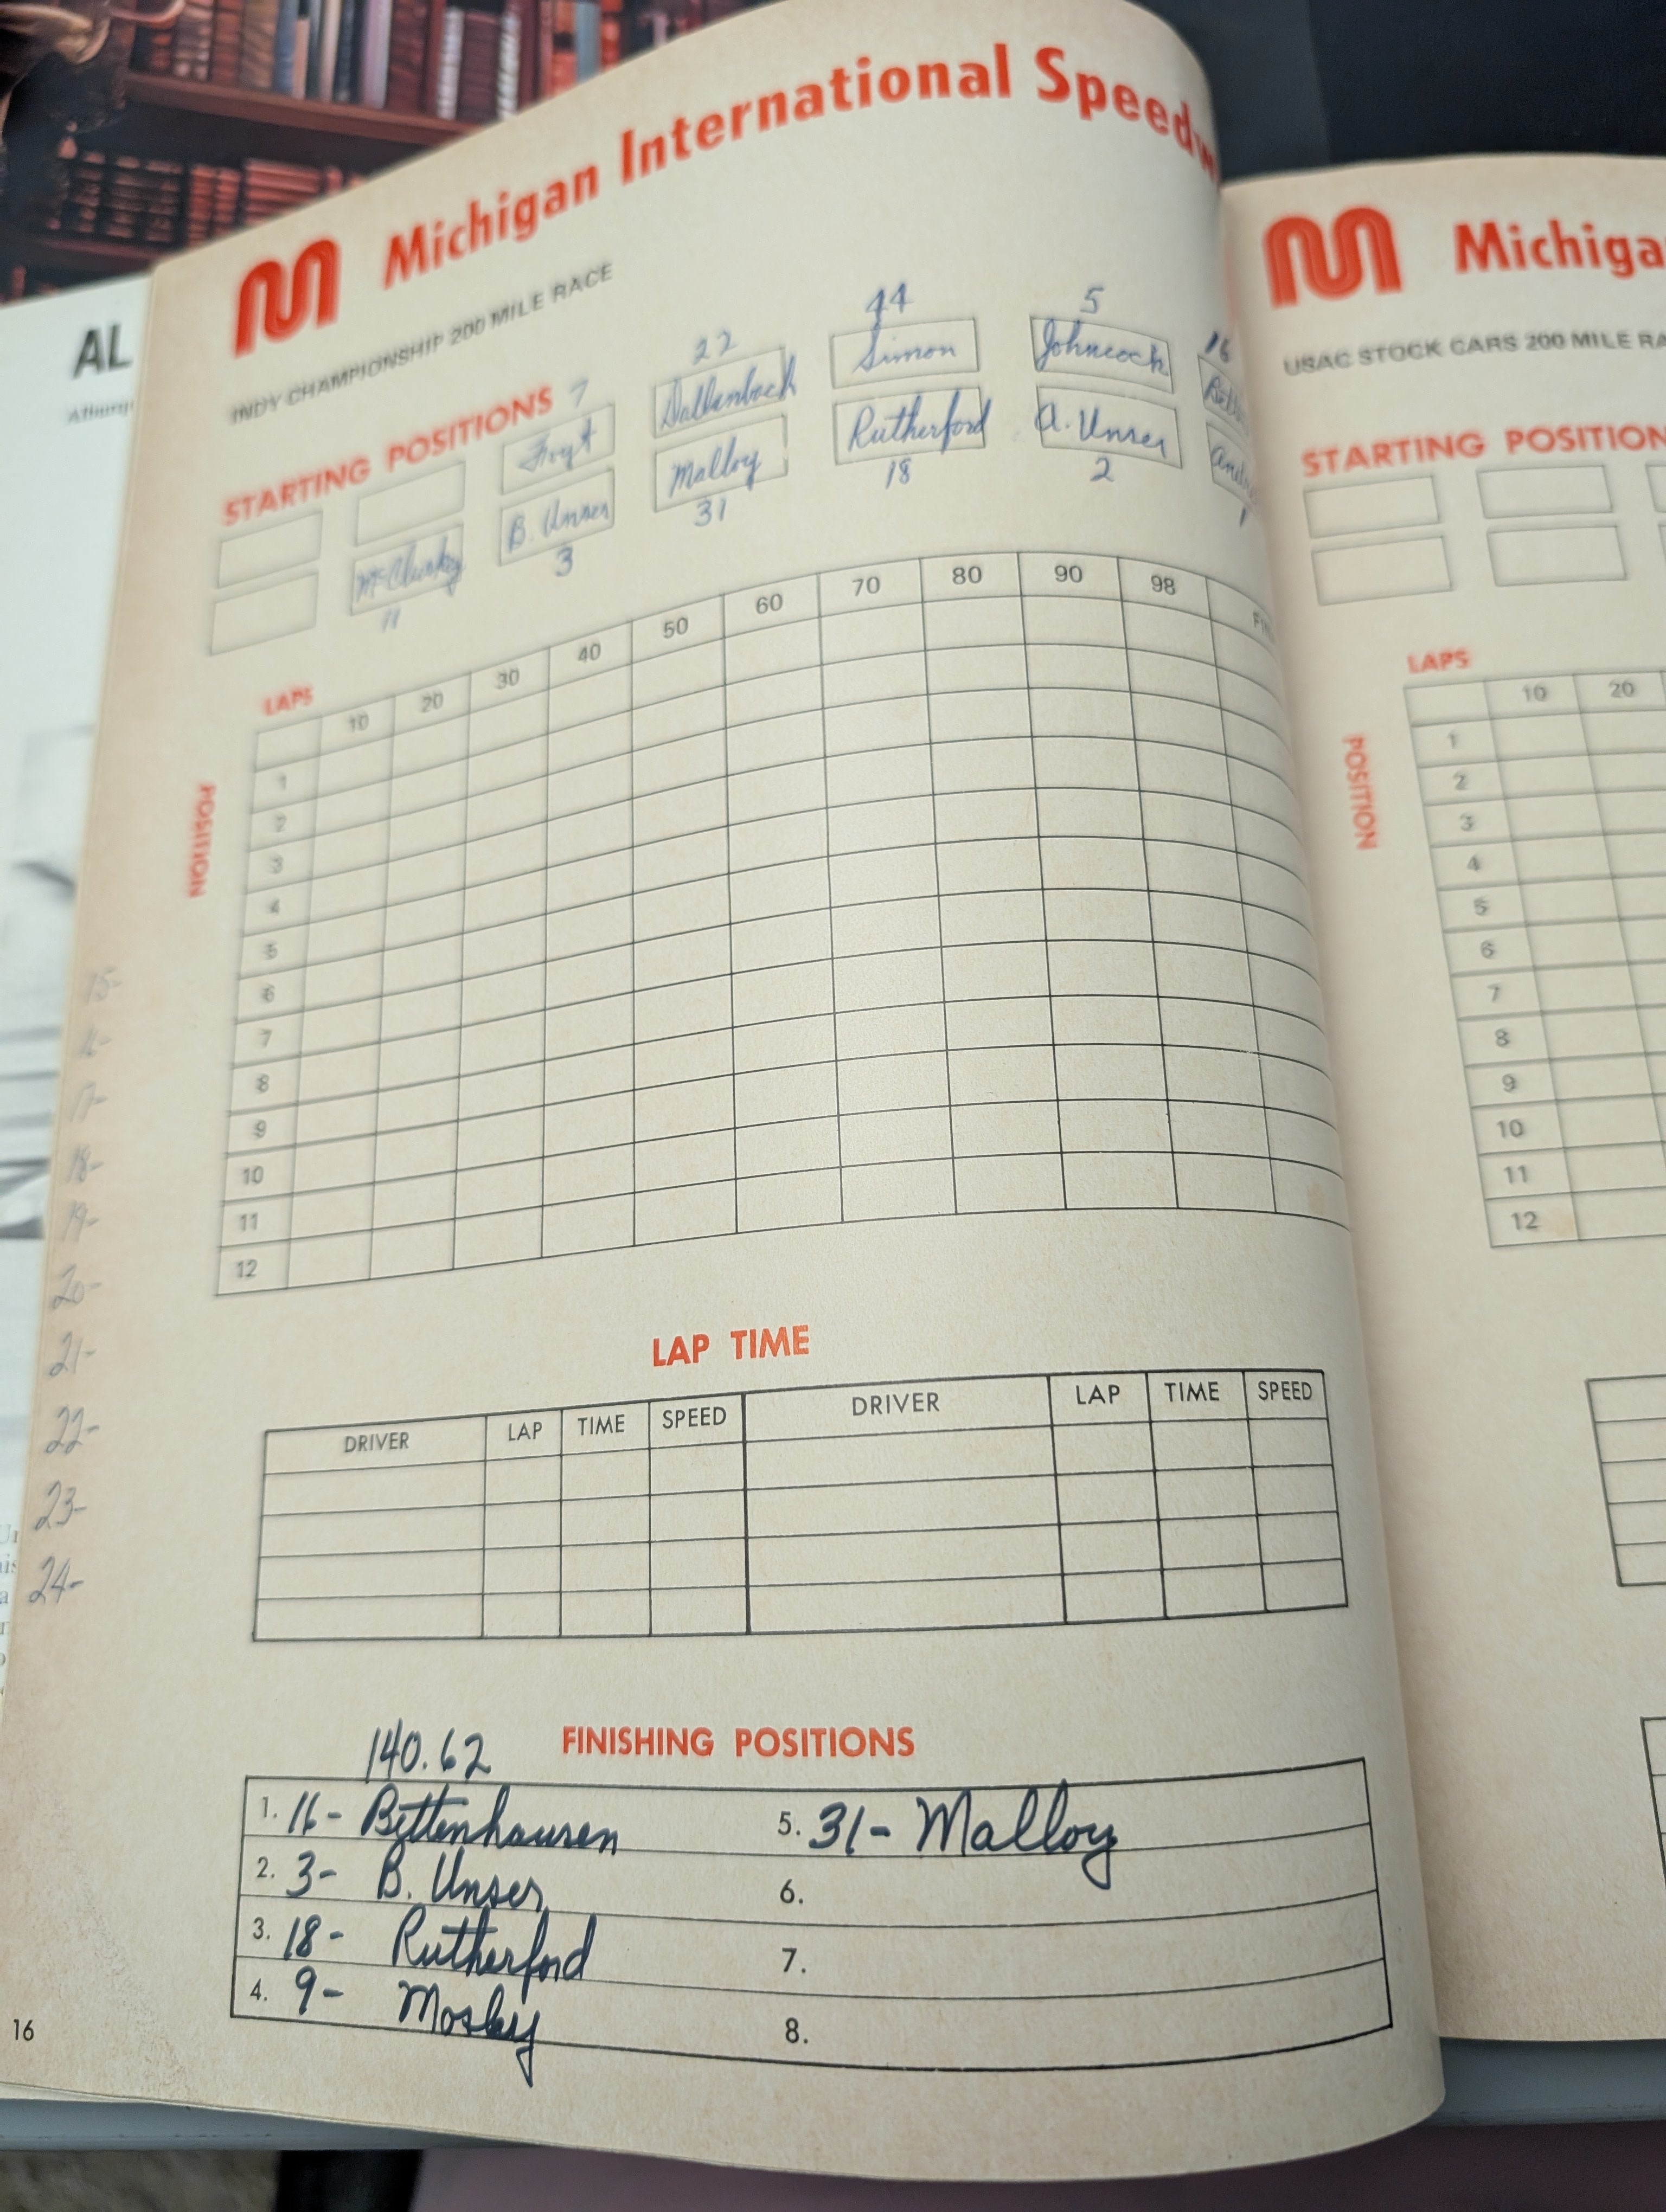 AL
Michigan International Speedw
INDY CHAMPIONSHIP 200 MILE RACE
STARTING POSITIONS
7 22 44 5 16
Foyt Dallenbach Simon Johncock
McCluskey B. Unser Malloy Rutherford A. Unser
11 3 31 18 2 1
LAPS
10 20 30 40 50 60 70 80 90 98
POSITION
1
2
3
4
5
6
7
8
9
10
11
12
15-
16-
17-
18-
19-
20-
21-
22-
23-
24-
LAP TIME
DRIVER LAP TIME SPEED DRIVER LAP TIME SPEED
140.62 FINISHING POSITIONS
1. 16- Bettenhausen 5. 31- Malloy
2. 3- B. Unser 6.
3. 18- Rutherford 7.
4. 9- Mosley 8.
16
Michiga
USAC STOCK CARS 200 MILE RA
STARTING POSITION
LAPS
10 20
POSITION
1
2
3
4
5
6
7
8
9
10
11
12